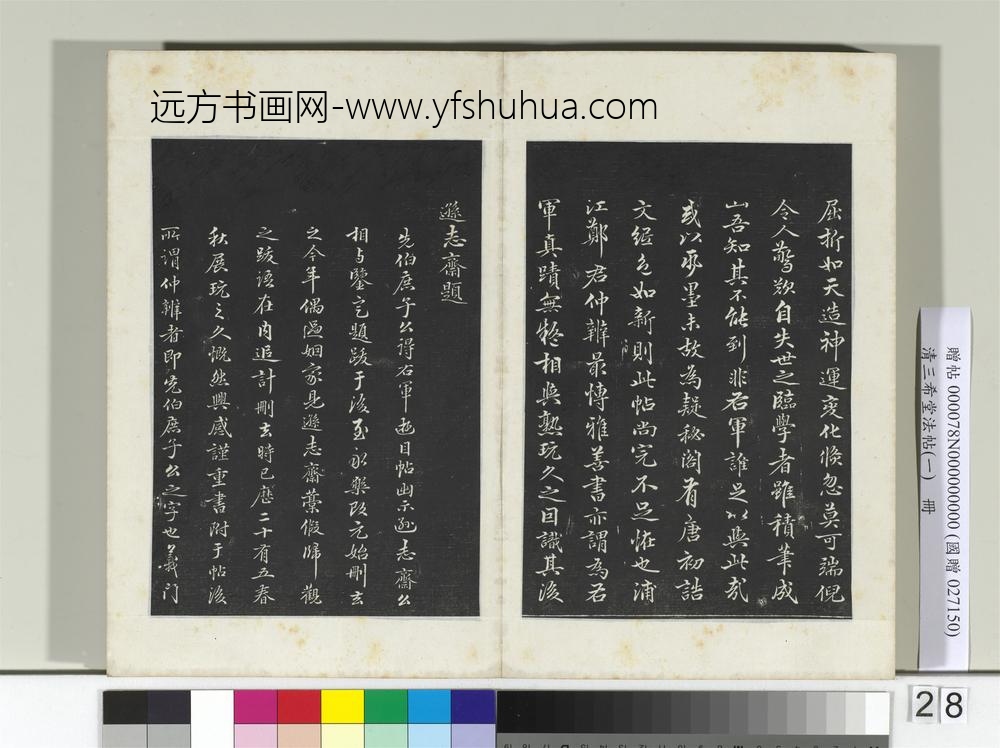 远方书画网-www.yfshuhua.com
屈折如天造神運變化倏忽莫可端倪
令人驚歎自失世之臨學者雖積筆成
山吾知其不能到非右軍誰足以與此哉
或以承墨未故為疑秘閣有唐初誥
文絙色如新則此帖尚完不足恠也浦
江鄭君仲辨最博雅善書亦謂為右
軍真蹟無疑相與熟玩久之因識其後
遜志齋題
先伯庶子公得右軍遊目帖出示遜志齋公
相與鑒定題跋于後至永樂改元始刪去
之今年偶過姻家見遜志齋藁假歸觀
之跋語在內追計刪去時已歷二十有五春
秋展玩之久慨然興感謹重書附于帖後
所謂仲辨者即先伯庶子公之字也義門
贈帖 000078N000000000 (國贈 027150)
清三希堂法帖(一) 冊
28